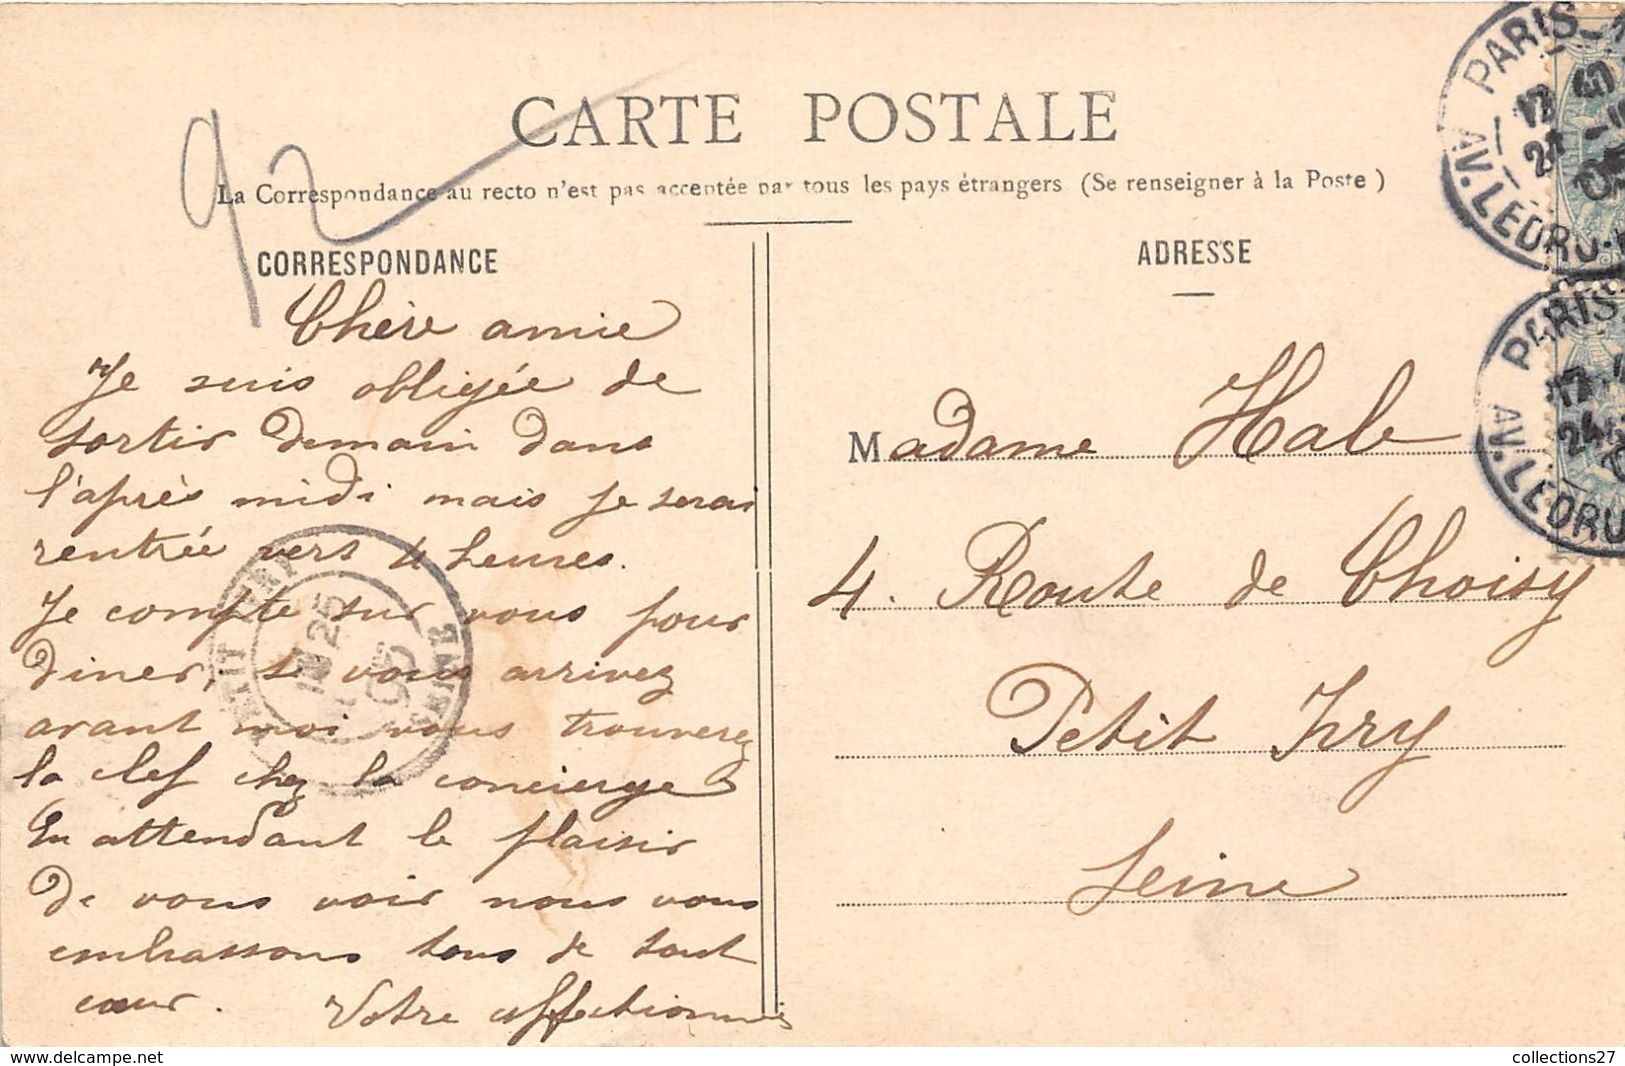 92
CARTE POSTALE
La Correspondance au recto n'est pas acceptée par tous les pays étrangers (Se renseigner à la Poste)
CORRESPONDANCE
Chère amie
Je suis obligée de
sortir demain dans
l'après midi mais je serai
rentrée vers 4 heures.
Je compte sur vous pour
diner, si vous arrivez
avant moi vous trouverez
la clef chez la concierge
En attendant le plaisir
de vous voir nous vous
embrassons tous de tout
cœur. Votre affectionnée
ADRESSE
Madame Hale
4. Route de Choisy
Petit Ivry
Seine
PARIS
AV. LEDRU
PARIS
AV. LEDRU
PETIT IVRY
25
05
SEINE
collections27
www.delcampe.net